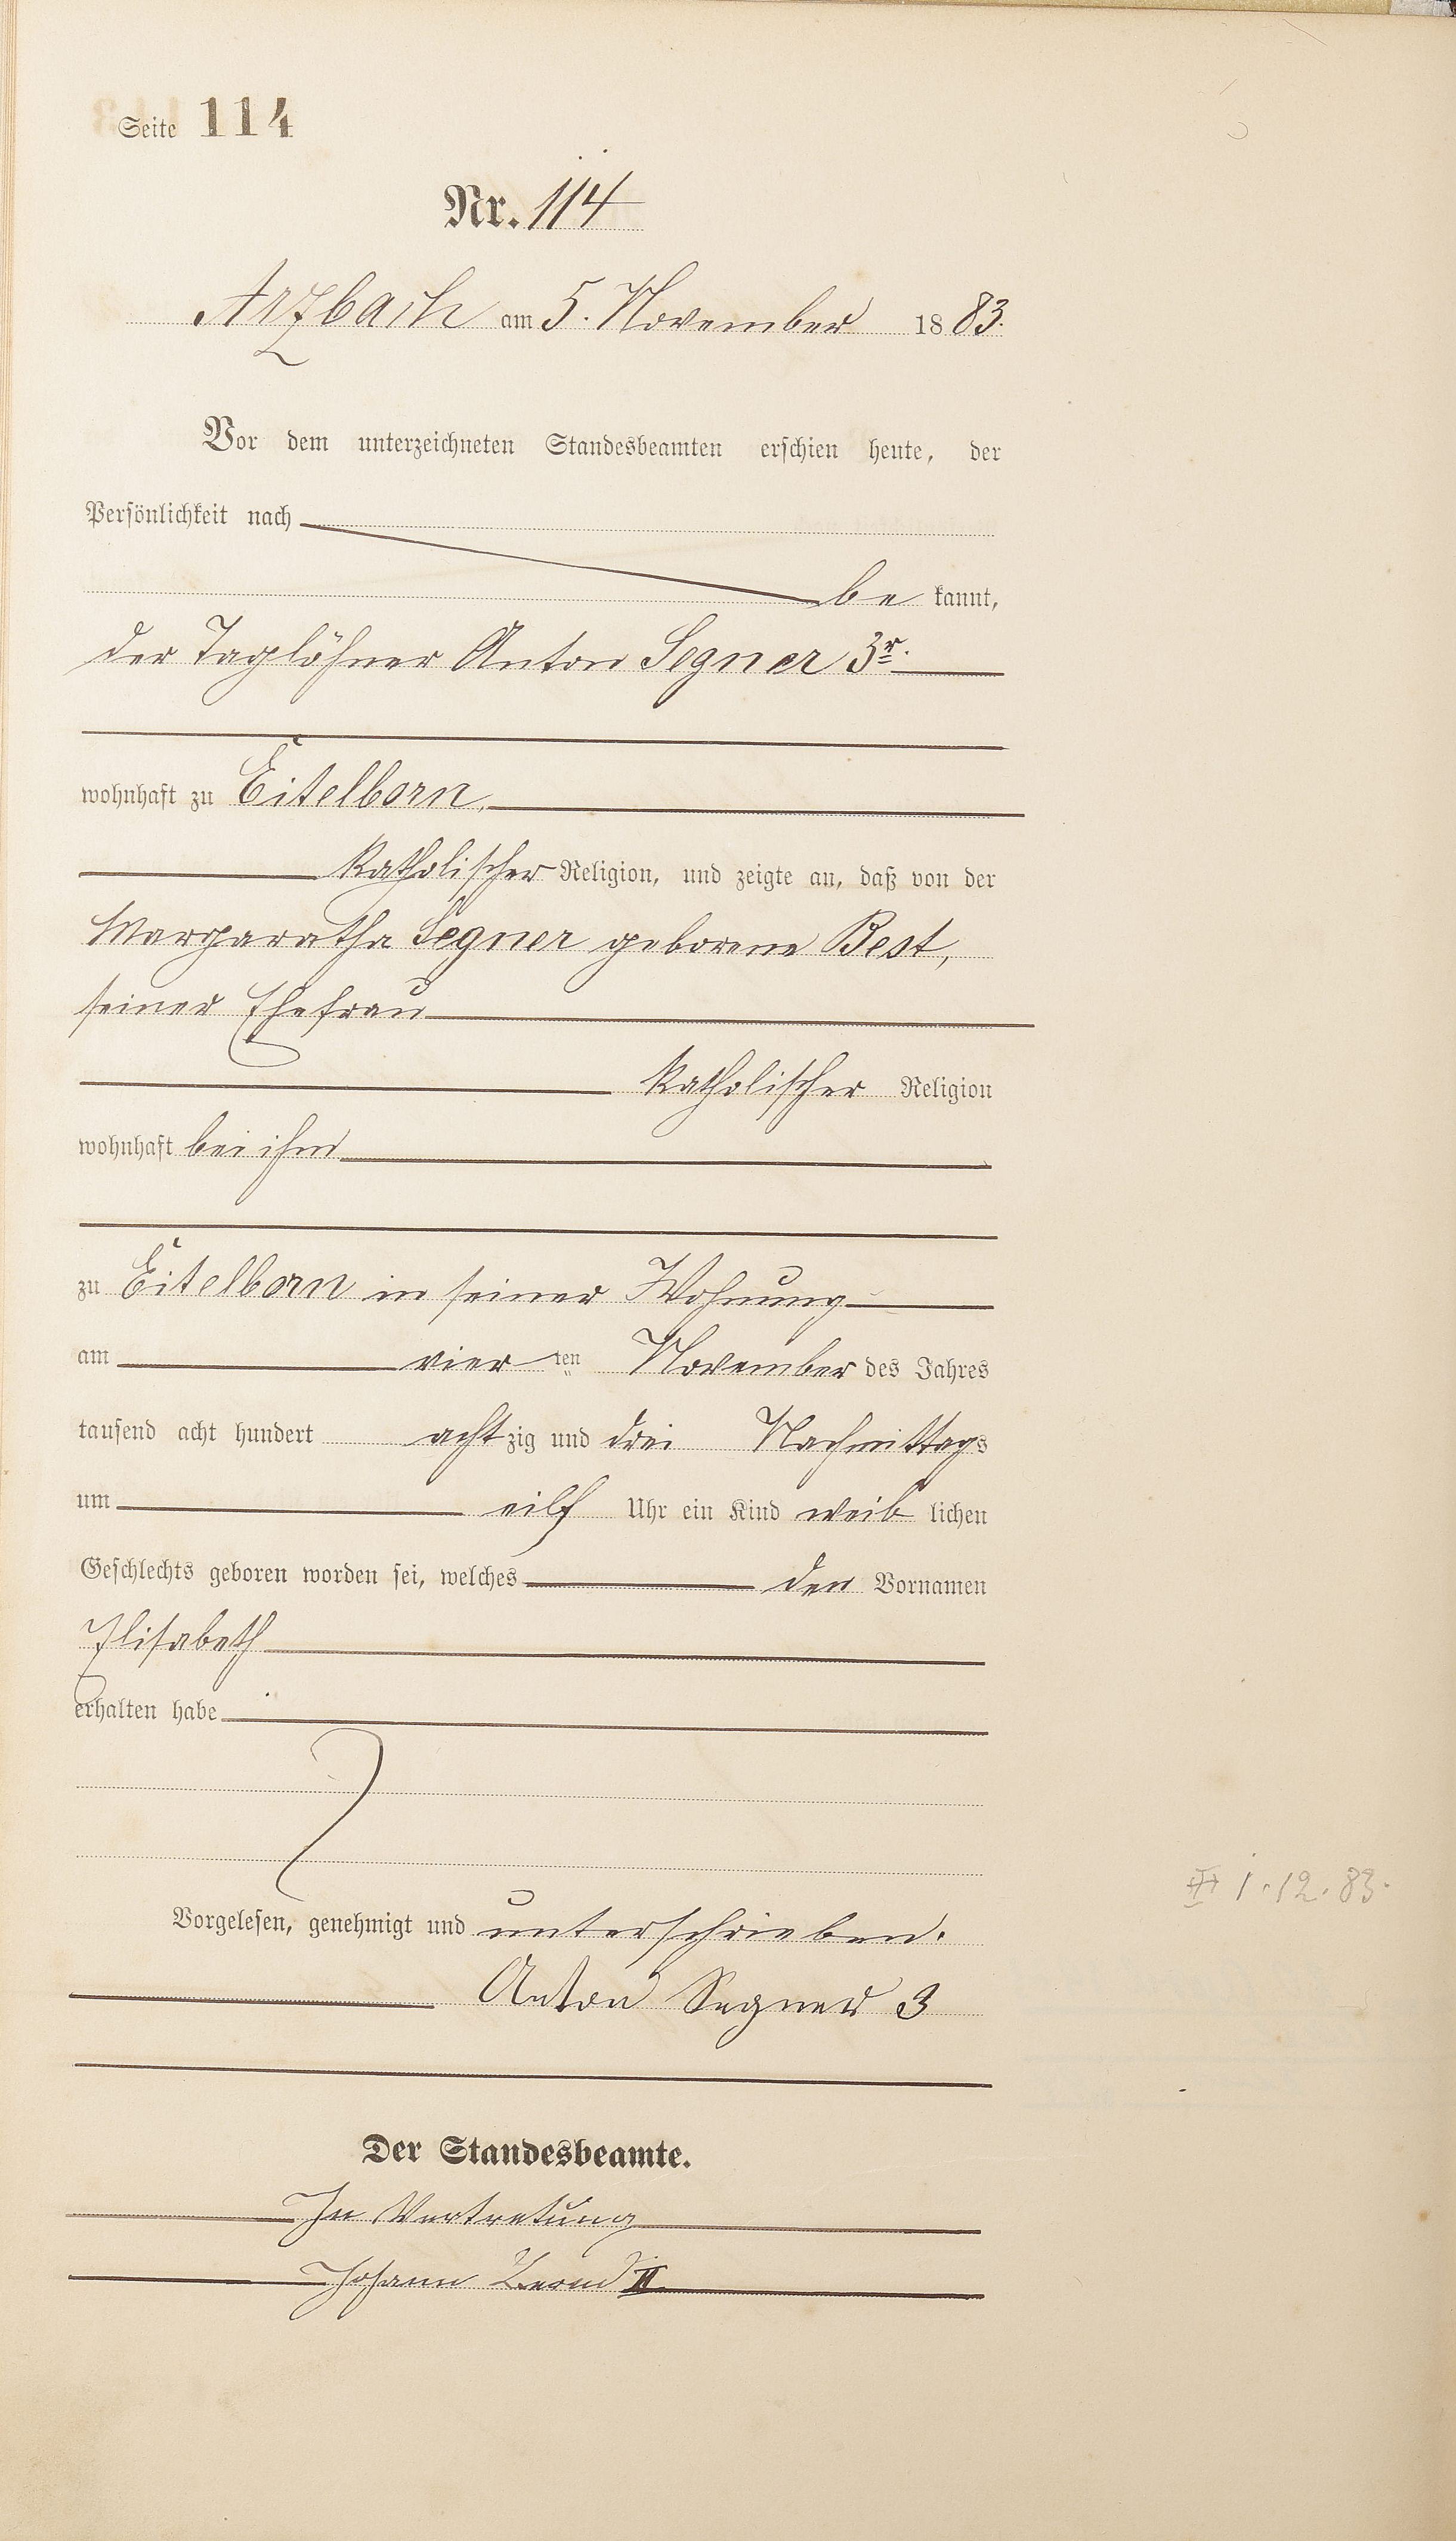 Seite 114
Nr. 114
Arzbach am 5. November 1883.
Vor dem unterzeichneten Standesbeamten erschien heute, der
Persönlichkeit nach
be kannt,
der Taglöhner Anton Segner 3r.
wohnhaft zu Eitelborn,
katholischer Religion, und zeigte an, daß von der
Margaratha Segner geborene Best,
seiner Ehefrau
katholischer Religion
wohnhaft bei ihm
zu Eitelborn in seiner Wohnung
am vier ten November des Jahres
tausend acht hundert achtzig und drei Nachmittags
um eilf Uhr ein Kind weib lichen
Geschlechts geboren worden sei, welches den Vornamen
Elisabeth
erhalten habe
Vorgelesen, genehmigt und unterschrieben.
Anton Segner 3
1.12.83.
Der Standesbeamte.
In Vertretung
Johann II